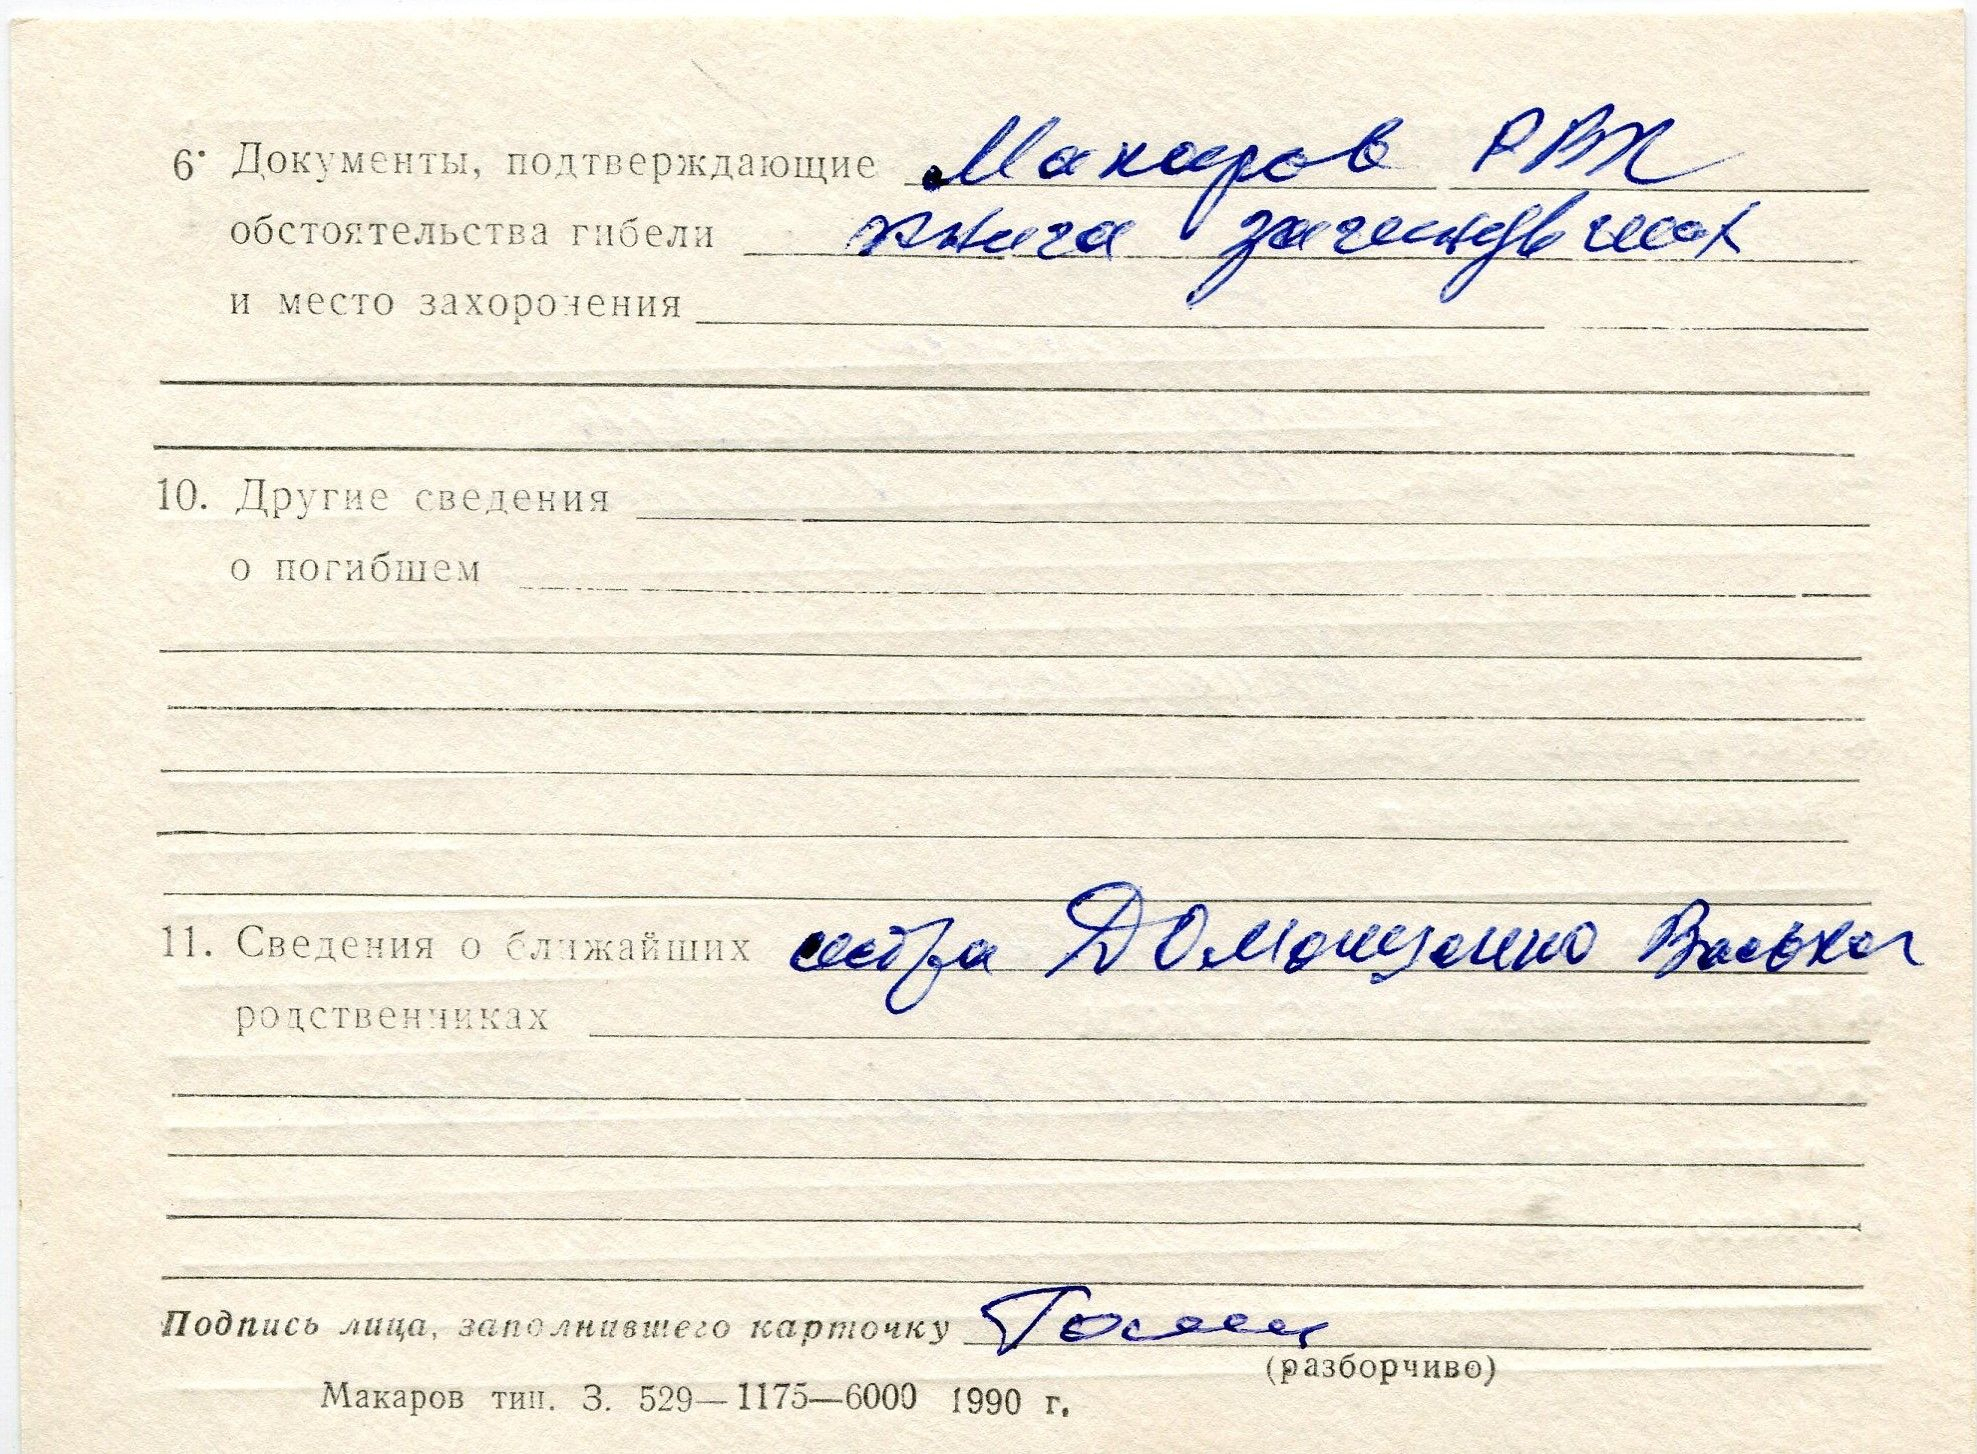 6. Документы, подтверждающие Макаров РВК
обстоятельства гибели книга
и место захоронения
10. Другие сведения
о погибшем
11. Сведения о ближайших сестра Домащенко
родственниках
Подпись лица, заполнившего карточку
(разборчиво)
Макаров тип. З. 529—1175—6000 1990 г.